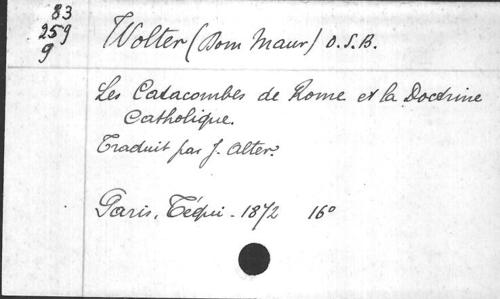 83
259
9
Wolter (Dom Maur) O.S.B.
Les Catacombes de Rome et la Doctrine
Catholique.
Traduit par J. Alter.
Paris, Téqui - 1872 16°